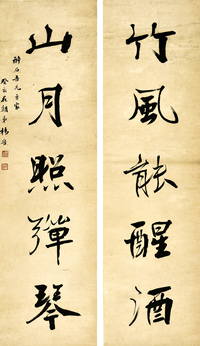 竹風能醒酒
山月照彈琴